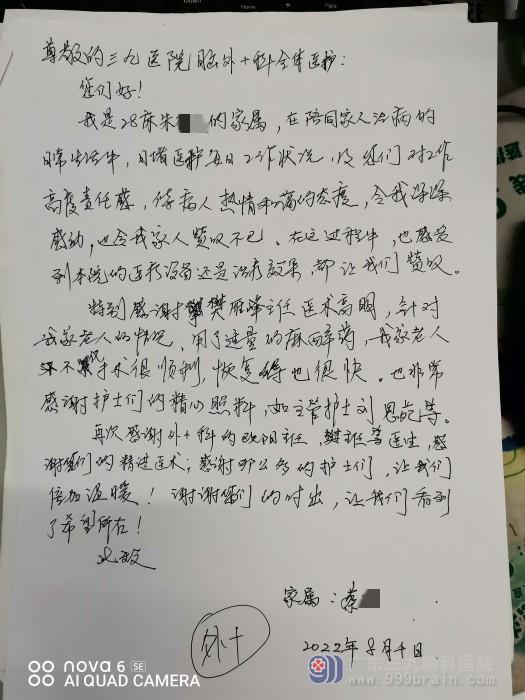 尊敬的三九医院脑外十科全体医护：
您们好！
我是28床朱 的家属，在陪同家人治病的
日常生活中，目堵医护每日工作状况，您们对工作
高度责任感，待病人热情和蔼的态度，令我深深
感动，也令我家人赞叹不已。在这过程中，也感受
到本院的医疗设备还是治疗效果，都让我们赞叹。
特别感谢樊雁峰主任医术高明，针对
我家老人的情况，用了适量的麻醉药，我家老人
不 手术很顺利，恢复得也很快。也非常
感谢护士们的精心照料，如主管护士刘思苑等。
再次感谢外十科的欧阳主任，樊主任等医生，感
谢您们的精进医术；感谢 的护士们，让我们
倍加温暖！谢谢您们的付出，让我们看到
了希望所在！
此致
家属：蔡
外十
2022年8月4日
nova 6 SE
AI QUAD CAMERA
广东三九脑科医院
www.999brain.com